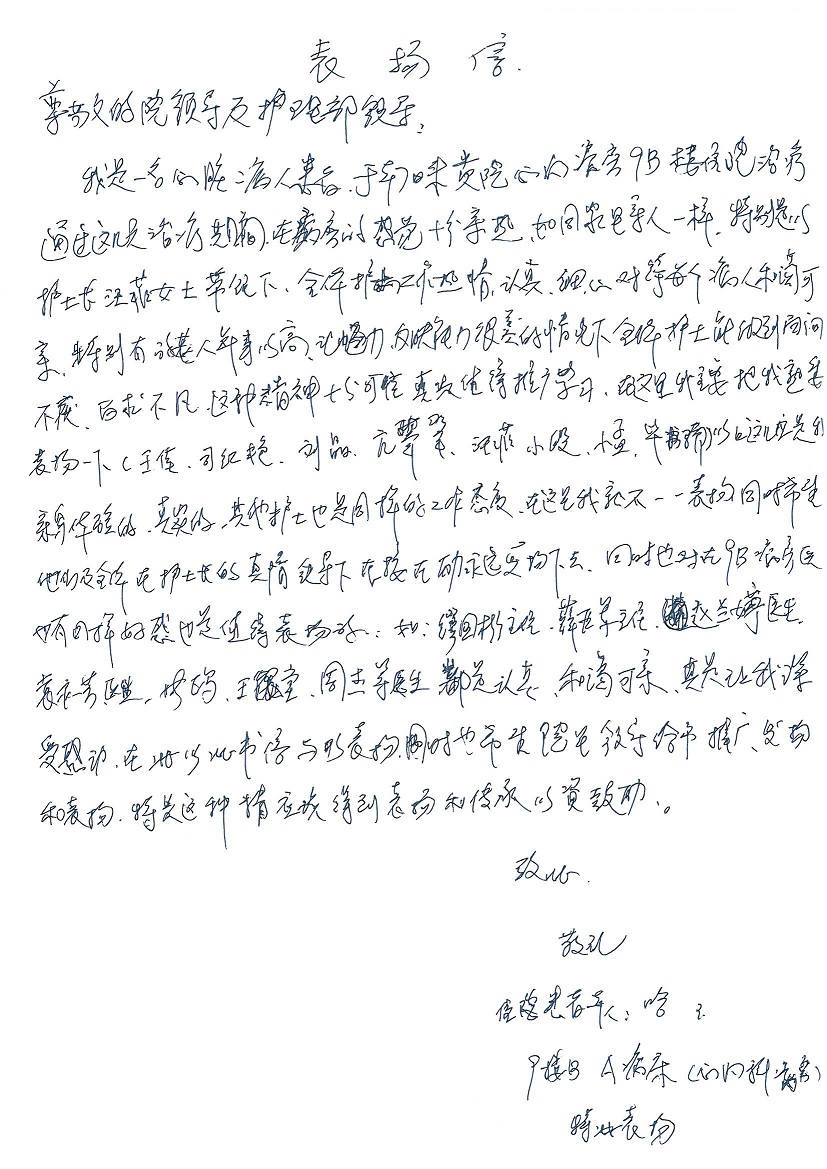 表扬信.
尊敬的院领导及护理部领导:
我是一名心脏病人患者.于 来贵院心内 9B楼住院治疗
通过这次治疗期间.在病房的 十分亲热.如同家里亲人一样.特别是以
护士长汪菲女士带领下、全体护士工作热情,认真、细心对待每个病人和蔼可
亲,特别有 老人年事以高、记忆力、反映能力很差的情况下全体护士能做到百问
不厌、百求不凡.这种精神十分可 真是值得推广学习、在这里我主要把我熟悉
表扬一下(王佳、司红艳、刘晶、亢翠翠、汪菲、小段、小孟、 )以上这几位是我
亲身体验的、真实的、其他护士也是同样的工作态度、在这里我就不一一表扬同时希望
他们及全体在护士长的真情领导下在接在励永远发扬下去、同时也对在9B病房医
也有同样好感也是值得表扬的.:如: 主任.薛 主任. 赵 医生.
袁 医生, 、王 堂、周杰等医生都是认真、和蔼可亲、真是让我深
受感动.在此以此书信与以表扬.同时也希望院里领导给予推广、发扬
和表扬.特是这种精 应该得到表扬和传承以资鼓励、。
致此.
敬礼
住院患者本人:哈
9楼B 病床(心内科病房)
特此表扬